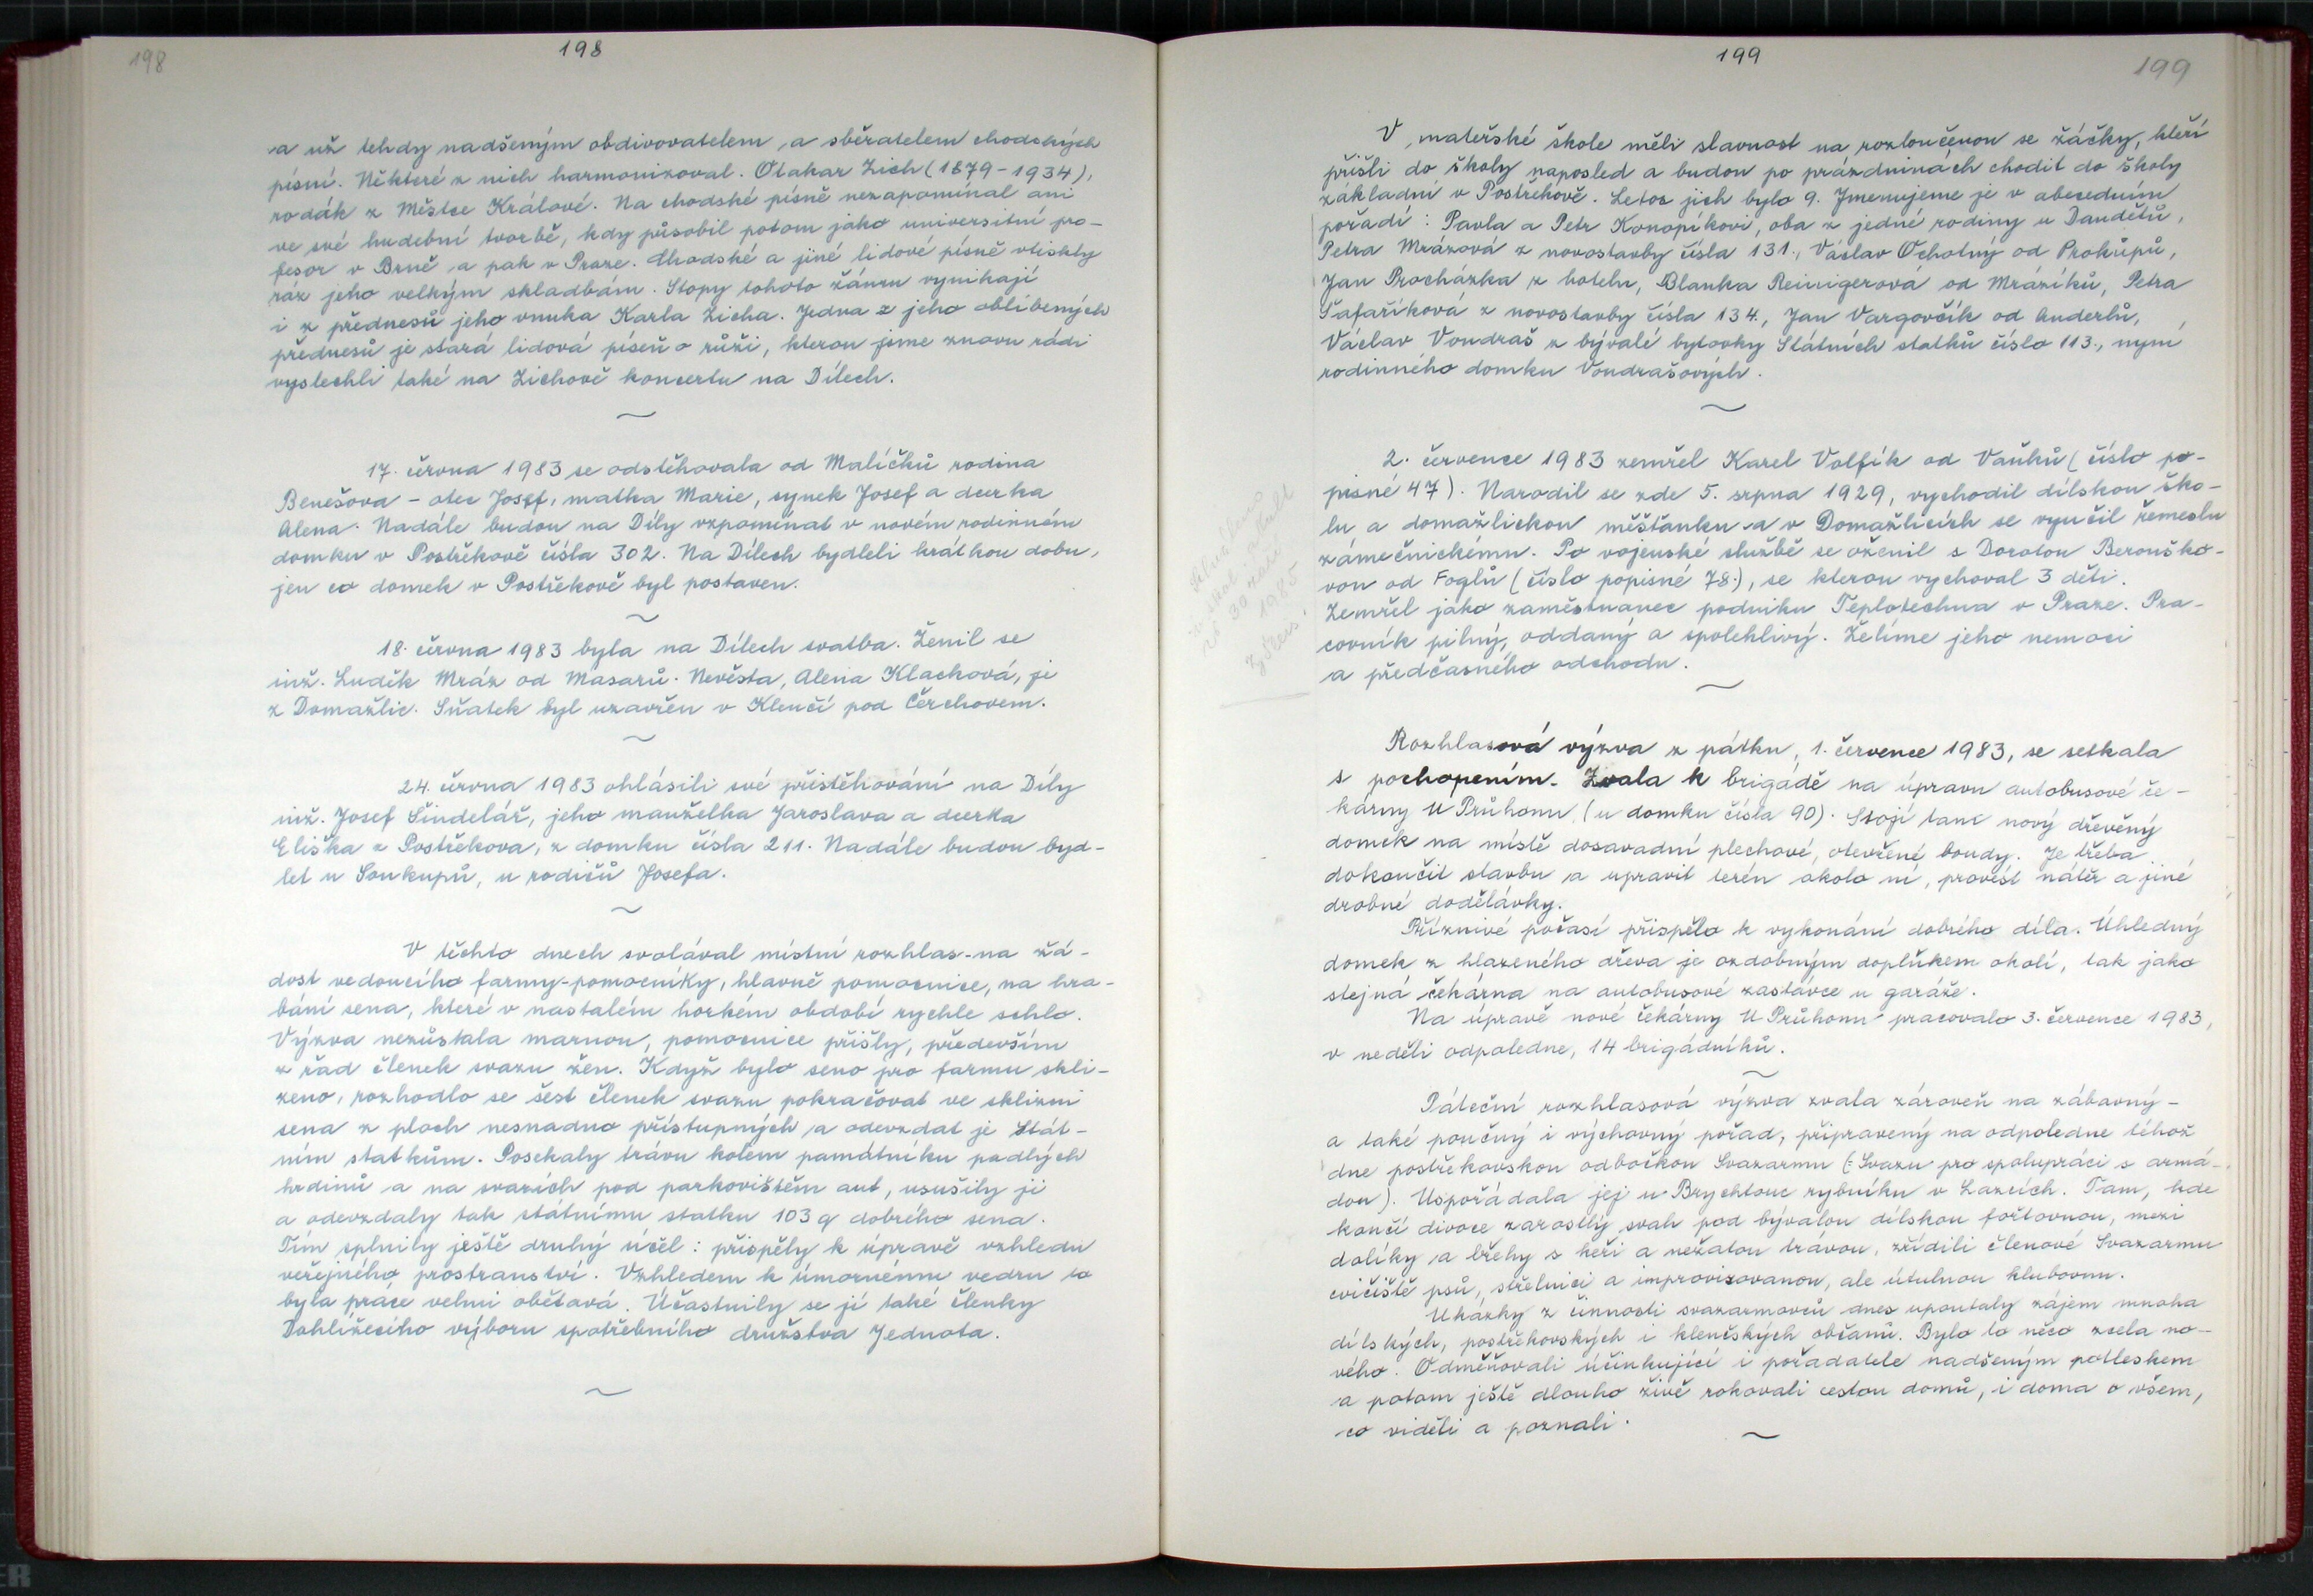 198
198
a už tehdy nadšeným obdivovatelem a sběratelem chodských
písní. Některé z nich harmonizoval. Otakar Zich (1879-1934),
rodák z Městce Králové. Na chodské písně nezapomínal ani
ve své hudební tvorbě, kdy působil potom jako universitní pro-
fesor v Brně a pak v Praze. Chodské a jiné lidové písně vtiskly
ráz jeho velkým skladbám. Stopy tohoto žánru vynikají
i z přednesů jeho vnuka Karla Zicha. Jedna z jeho oblíbených
přednesů je stará lidová píseň o růži, kterou jsme znovu rádi
vyslechli také na Zichově koncertu na Dílech.
~
17. června 1983 se odstěhovala od Malíčků rodina
Benešova - otec Josef, matka Marie, synek Josef a dcerka
Alena. Nadále budou na Díly vzpomínat v novém rodinném
domku v Postřekově čísla 302. Na Dílech bydleli krátkou dobu,
jen co domek v Postřekově byl postaven.
~
18. června 1983 byla na Dílech svatba. Ženil se
inž. Luděk Mráz od Masarů. Nevěsta, Alena Klacková, je
z Domažlic. Sňatek byl uzavřen v Klenčí pod Čerchovem.
~
24. června 1983 ohlásili své přistěhování na Díly
inž. Josef Šindelář, jeho manželka Jaroslava a dcerka
Eliška z Postřekova, z domku čísla 211. Nadále budou byd-
let u Soukupů, u rodičů Josefa.
~
V těchto dnech svolával místní rozhlas-na žá-
dost vedoucího farmy-pomocníky, hlavně pomocnice, na hra-
bání sena, které v nastalém horkém období rychle schlo.
Výzva nezůstala marnou, pomocnice přišly, především
z řad členek svazu žen. Když bylo seno pro farmu skli-
zeno, rozhodlo se šest členek svazu pokračovat ve sklizni
sena z ploch nesnadno přístupných a odevzdat je Stát-
ním statkům. Posekaly trávu kolem památníku padlých
hrdinů a na svazích pod parkovištěm aut, usušily ji
a odevzdaly tak státnímu statku 103 q dobrého sena.
Tím splnily ještě druhý účel: přispěly k úpravě vzhledu
veřejného prostranství. Vzhledem k úmornému vedru to
byla práce velmi obětavá. Účastnily se jí také členky
Dohlížecího výboru spotřebního družstva Jednota.
~
199
199
V mateřské škole měli slavnost na rozloučenou se žáčky, kteří
přišli do školy naposled a budou po prázdninách chodit do školy
základní v Postřekově. Letos jich bylo 9. Jmenujeme je v abecedním
pořadí: Pavla a Petr Konopíkovi, oba z jedné rodiny u Dandětů,
Petra Mrázová z novostavby čísla 131., Václav Ochotný od Prokůpů,
Jan Procházka z hotelu, Blanka Reinigerová od Mráziků, Petra
Šafaříková z novostavby čísla 134., Jan Vargovčík od Anderlů,
Václav Vondraš z bývalé bytovky Státních statků číslo 113., nyní
rodinného domku Vondrašových.
~
2. července 1983 zemřel Karel Volfík od Vaňků (číslo po-
pisné 47). Narodil se zde 5. srpna 1929, vychodil dílskou ško-
lu a domažlickou měšťanku a v Domažlicích se vyučil řemeslu
zámečnickému. Po vojenské službě se oženil s Dorotou Berouško-
vou od Foglů (číslo popisné 78.), se kterou vychoval 3 děti.
Zemřel jako zaměstnanec podniku Teplotechna v Praze. Pra-
covník pilný, oddaný a spolehlivý. Želíme jeho nemoci
a předčasného odchodu.
~
30
1985
Rozhlasová výzva z pátku, 1. července 1983, se setkala
s pochopením. Zvala k brigadě na úpravu autobusové če-
kárny U Průhonu (u domku čísla 90). Stojí tam nový dřevěný
domek na místě dosavadní plechové, otevřené boudy. Je třeba
dokončit stavbu a upravit terén okolo ní, provést nátěr a jiné
drobné dodělávky.
Příznivé počasí přispělo k vykonání dobrého díla. Úhledný
domek z hlazeného dřeva je ozdobným doplňkem okolí, tak jako
stejná čekárna na autobusové zastávce u garáže.
Na úpravě nové čekárny U Průhonu pracovalo 3. července 1983,
v neděli odpoledne, 14 brigádníků.
~
Páteční rozhlasová výzva zvala zároveň na zábavný-
a také poučný i výchovný pořad, připravený na odpoledne téhož
dne postřekovskou odbočkou Svazarmu (= Svazu pro spolupráci s armá-
dou). Uspořádala jej u Brychtouc rybníku v Lazcích. Tam, kde
končí divoce zarostlý svah pod bývalou dílskou foštovnou, mezi
dolíky a břehy s keři a nežatou trávou, zřídili členové Svazarmu
cvičiště psů, střelnici a improvizovanou, ale útulnou klubovnu.
Ukázky z činnosti svazarmovců dnes upoutaly zájem mnoha
dílských, postřekovských i klenčských občanů. Bylo to něco zcela no-
vého. Odměňovali účinkující i pořadatele nadšeným potleskem
a potom ještě dlouho živě rokovali cestou domů, i doma o všem,
co viděli a poznali.
~